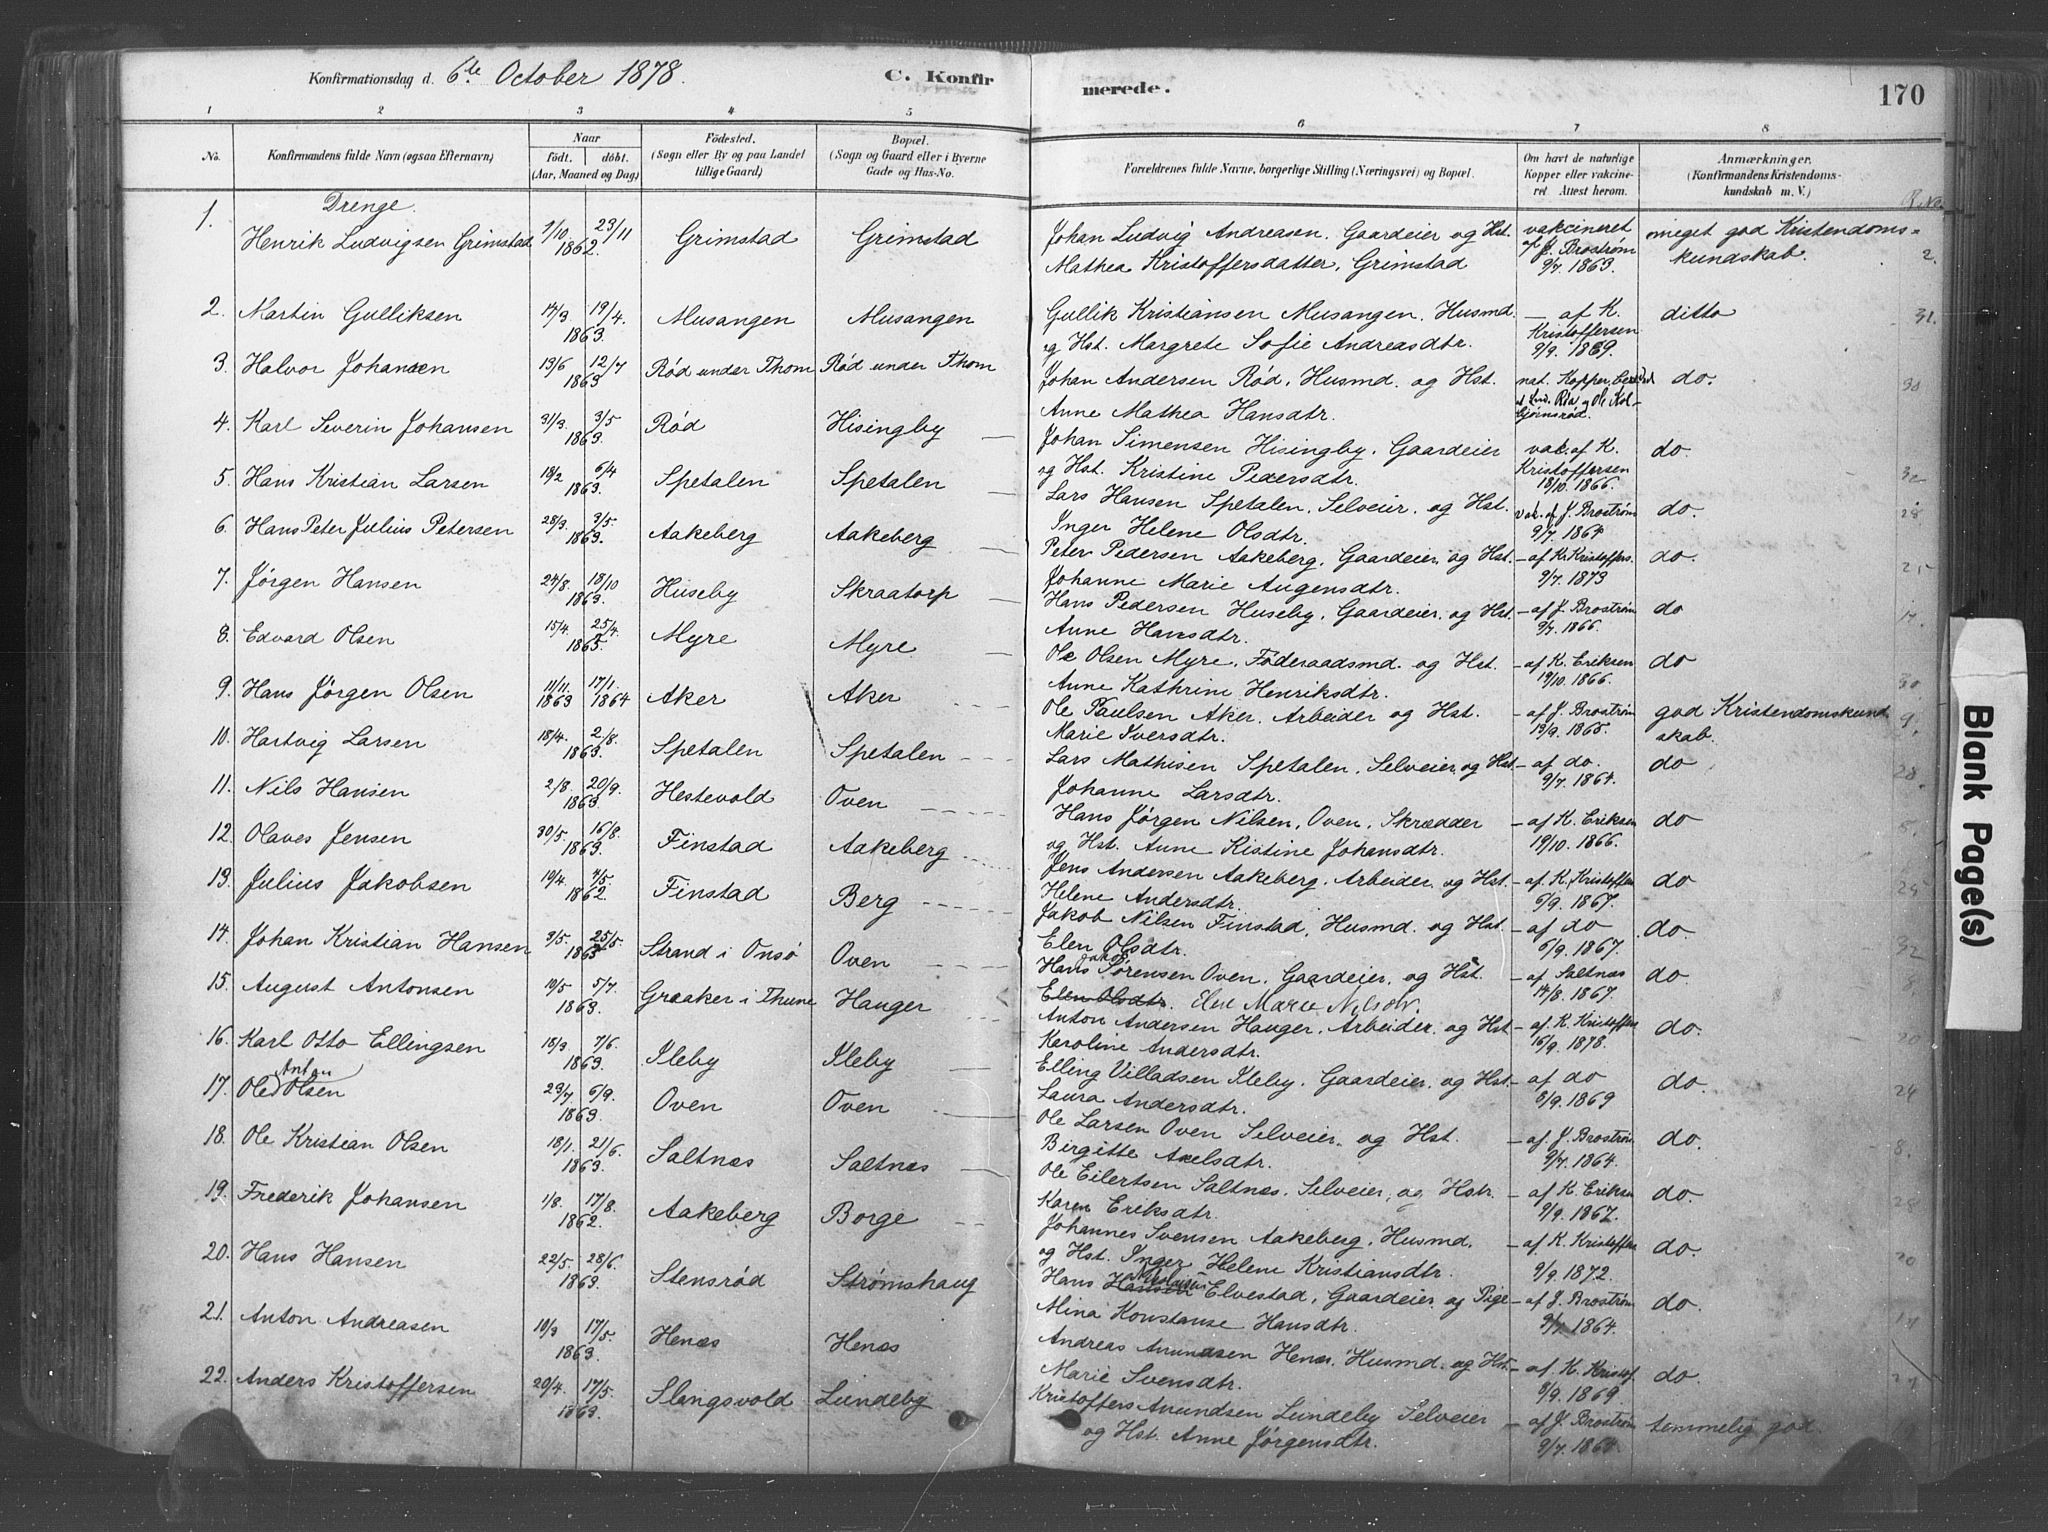 Konfirmationsdag d. 6te October 1878. C. Konfir
merede. 170
1 2 3 4 5 6 7 8
No. Konfirmandens fulde Navn (ogsaa Efternavn) Naar födt. döbt. (Aar, Maaned og Dag) Födested. (Sogn eller By og paa Landet tillige Gaard) Bopæl. (Sogn og Gaard eller i Byerne Gade og Hus-No. Forældrenes fulde Navne, borgerlige Stilling (Næringsvei) og Bopæl. Om havt de naturlige Kopper eller vakcineret. Attest herom. Anmærkninger. (Konfirmandens Kristendomskundskab m. V.)
Drenge.
1. Henrik Ludvigsen Grimstad 7/10 23/11 1862. Grimstad Grimstad Johan Ludvig Andreasen, Gaardeier og Hst. vakcineret meget god Kristendoms=
Mathea Kristoffersdatter, Grimstad af J. Brostrøm 9/7. 1863. kundskab. 2.
2. Martin Gulliksen 14/3. 19/4. 1863. Musangen Musangen Gullik Kristiansen Musangen, Husmd. — af K. ditto 31.
og Hst. Margrete Sofie Andreasdtr. Kristoffersen 9/9. 1869.
3. Halvor Johansen 13/6 12/7 1863 Rød under Thom Rød under Thom Johan Andersen Rød, Husmd. og Hst. nat. Kopper, do. 30
Anne Mathea Hansdtr.
4. Karl Severin Johansen 31/3. 3/5 1863. Rød Hisingby Johan Simensen Hisingby, Gaardeier vak. af K. do.
og Hst. Kristine Pedersdtr. Kristoffersen 18/10. 1866. 32
5. Hans Kristian Larsen 18/2 6/4 1863. Spetalen Spetalen Lars Hansen Spetalen, Selveier, og Hst. vak. af J. Brostrøm do. 28
Inger Helene Olsdtr. 9/7. 1864
6. Hans Peter Julius Petersen 28/3. 3/5. 1863. Aakeberg Aakeberg Peter Pedersen Aakeberg, Gaardeier, og Hst. — af K. Kristoffers. do. 25
Johanne Marie Augensdtr. 9/7. 1873
7. Jørgen Hansen 24/8. 18/10 1863. Huseby Skraatorp Hans Pedersen Huseby, Gaardeier, og Hst. — af J. Brostrøm do 17.
Anne Hansdtr. 9/7. 1866.
8. Edvard Olsen 15/4. 25/4. Myre Myre Ole Olsen Myre, Föderaadsmd. og Hst. — af K. Eriksen do 30.
Anne Kathrine Henriksdtr. 19/10. 1866.
9. Hans Jørgen Olsen 11/11. 1863 17/1. 1864 Aker Aker Ole Paulsen Aker, Arbeider og Hst. — af J. Brostrøm god Kristendomskund 9.
Marie Iversdtr. 13/9. 1865. skab.
10. Hartvig Larsen 18/4. 2/8. 1863. Spetalen Spetalen Lars Mathisen Spetalen, Selveier, og Hst — af do. do 28.
Johanne Larsdtr. 9/7. 1864.
11. Nils Hansen 2/8. 20/9. 1863. Hestevold Oven Hans Jørgen Nilsen, Oven, Skrædder — af K. Eriksen do 5.
og Hst. Anne Kistine Johansdtr. 19/10. 1866.
12. Olaves Jensen 30/5. 16/8. 1863. Finstad Aakeberg Jens Andersen Aakeberg, Arbeider, og Hst. — af K. Kristoffen do 25
Helene Andersdtr. 6/9. 1867.
13. Julius Jakobsen 19/4. 4/5. 1862. Finstad Berg Jakob Nilsen Finstad, Husmd. og Hst. — af do do. 32
Elen Olsdtr. 6/9. 1867.
14. Johan Kristian Hansen 3/5. 25/5. Strand i Onsö Oven Hans Jakob Sørensen Oven, Gaardeier, og Hst. — af Saltnæs do 8.
Elen Olsdtr. Elene Marie Nilsdtr. 14/8. 1867.
15. August Antonsen 10/5. 5/7. 1863. Graaker i Thune Hauger Anton Andersen Hauger, Arbeider, og Hst — af K. Kristoffen do. 20
Karoline Andersdtr. 16/9. 1878.
16. Karl Otto Ellingsen 18/3 7/6. 1863. Ileby Ileby Elling Villadsen Ileby, Gaardeier, og Hst — af do do. 24
Laura Andersdtr. 8/9. 1869
17. Ole Anton Olsen 29/7. 6/9. 1863. Oven Oven Ole Larsen Oven Selveier, og Hst. — af J. Brostrøm do. 8.
Birgitte Axelsdtr. 9/7. 1864.
18. Ole Kristian Olsen 18/1. 21/6. 1863. Saltnæs Saltnæs Ole Eilertsen Saltnæs, Selveier, og Hstr. — af K. Eriksen do. 28
Karen Eriksdtr. 9/9. 1867.
19. Frederik Johansen 1/8. 17/8. 1862. Aakeberg Borge Johannes Svensen Aakeberg, Husmd. — af K. Kristoffen do. 20
og Hst. Inger Helene Kristiansdtr. 9/9. 1872.
20. Hans Hansen 22/5. 28/6. 1863. Stensrød Strømshaug Hans Hansen Elvestad, Gaardeier, og Pige — af J. Brostrøm do. 17
Mina Konstanse Hansdtr. 9/7 1864.
21. Anton Andreasen 10/3 17/5. 1863. Henæs Henæs Andreas Amundsen Henæs, Husmd. og Hst. — af K. Kristof. do.
Marie Svensdtr. 8/9. 1869
22. Anders Kristoffersen 20/4. 17/5. 1863. Slangsvold Lundeby Kristoffers Amundsen Lundeby Selveier — af J. Brostrøm temmelig god
og Hst. Anne Jørgensdtr. 9/7. 1864.
Blank Page(s)